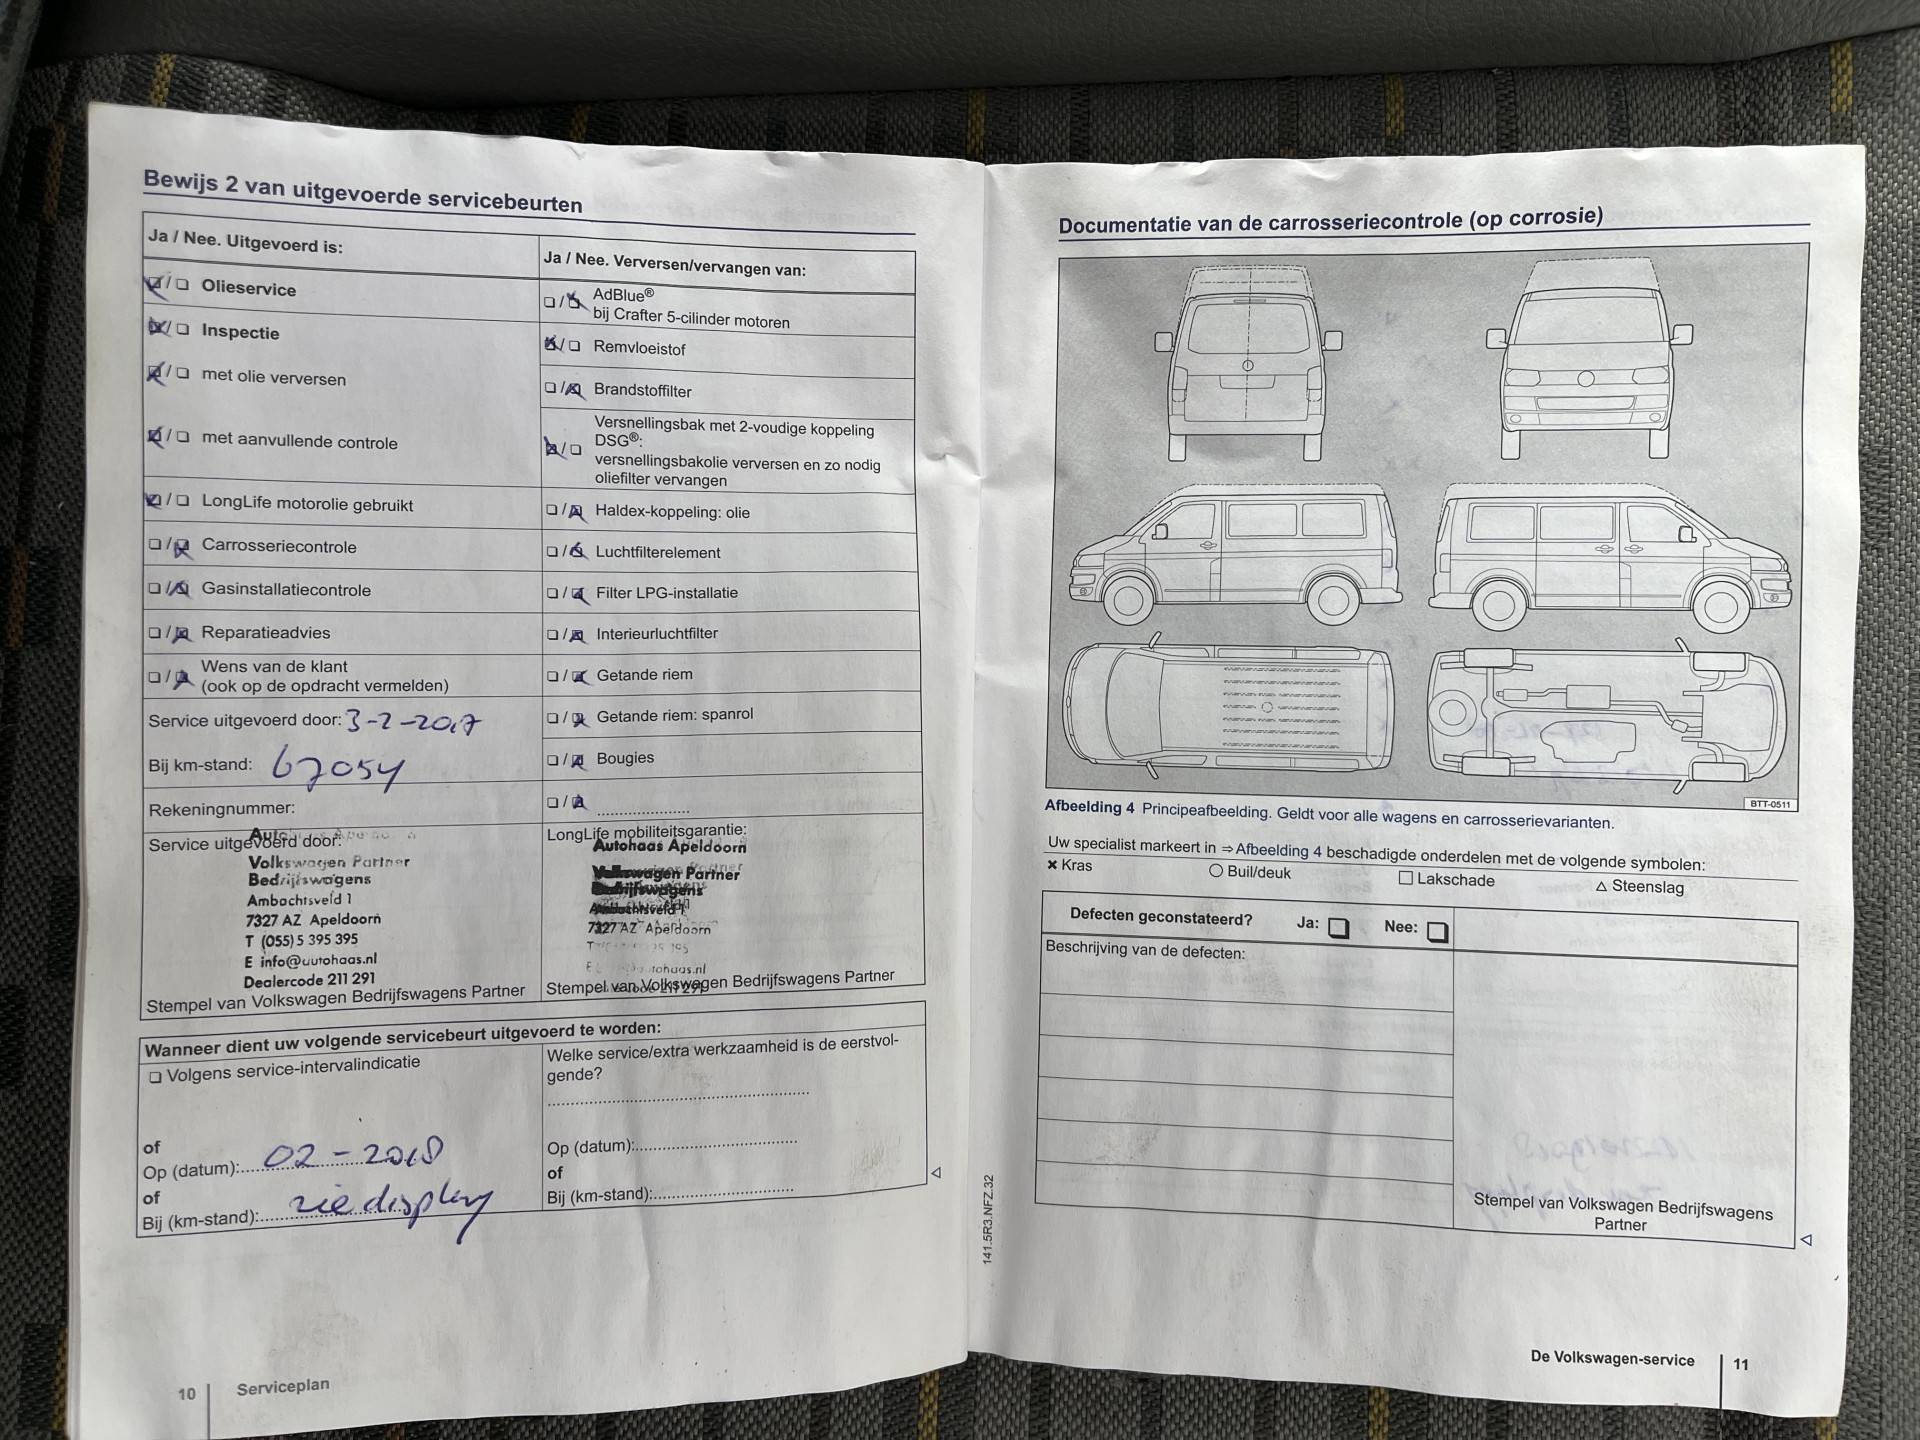 Bewijs 2 van uitgevoerde servicebeurten
Ja / Nee. Uitgevoerd is:
❏ / ❏ Olieservice
❏ / ❏ Inspectie
❏ / ❏ met olie verversen
❏ / ❏ met aanvullende controle
❏ / ❏ LongLife motorolie gebruikt
❏ / ❏ Carrosseriecontrole
❏ / ❏ Gasinstallatiecontrole
❏ / ❏ Reparatieadvies
❏ / ❏ Wens van de klant
(ook op de opdracht vermelden)
Service uitgevoerd door: 3-2-2017
Bij km-stand: 67054
Rekeningnummer:
Service uitgevoerd door:
Volkswagen Partner
Bedrijfswagens
Ambachtsveld 1
7327 AZ Apeldoorn
T (055) 5 395 395
E info@autohaas.nl
Dealercode 211 291
Stempel van Volkswagen Bedrijfswagens Partner
Ja / Nee. Verversen/vervangen van:
❏ / ❏ AdBlue®
bij Crafter 5-cilinder motoren
❏ / ❏ Remvloeistof
❏ / ❏ Brandstoffilter
Versnellingsbak met 2-voudige koppeling
❏ / ❏ DSG®:
versnellingsbakolie verversen en zo nodig
oliefilter vervangen
❏ / ❏ Haldex-koppeling: olie
❏ / ❏ Luchtfilterelement
❏ / ❏ Filter LPG-installatie
❏ / ❏ Interieurluchtfilter
❏ / ❏ Getande riem
❏ / ❏ Getande riem: spanrol
❏ / ❏ Bougies
❏ / ❏ .....................
LongLife mobiliteitsgarantie:
Autohaas Apeldoorn
Volkswagen Partner
Bedrijfswagens
Ambachtsveld 1
7327 AZ Apeldoorn
Stempel van Volkswagen Bedrijfswagens Partner
Wanneer dient uw volgende servicebeurt uitgevoerd te worden:
❏ Volgens service-intervalindicatie
of
Op (datum): 02-2018
of
Bij (km-stand): zie display
Welke service/extra werkzaamheid is de eerstvol-
gende?
Op (datum):
of
Bij (km-stand):
10 | Serviceplan
141.5R3.NFZ.32
Documentatie van de carrosseriecontrole (op corrosie)
BTT-0511
Afbeelding 4 Principeafbeelding. Geldt voor alle wagens en carrosserievarianten.
Uw specialist markeert in ⇒ Afbeelding 4 beschadigde onderdelen met de volgende symbolen:
✖ Kras ○ Buil/deuk □ Lakschade △ Steenslag
Defecten geconstateerd? Ja: ❏ Nee: ❏
Beschrijving van de defecten:
Stempel van Volkswagen Bedrijfswagens
Partner
De Volkswagen-service | 11